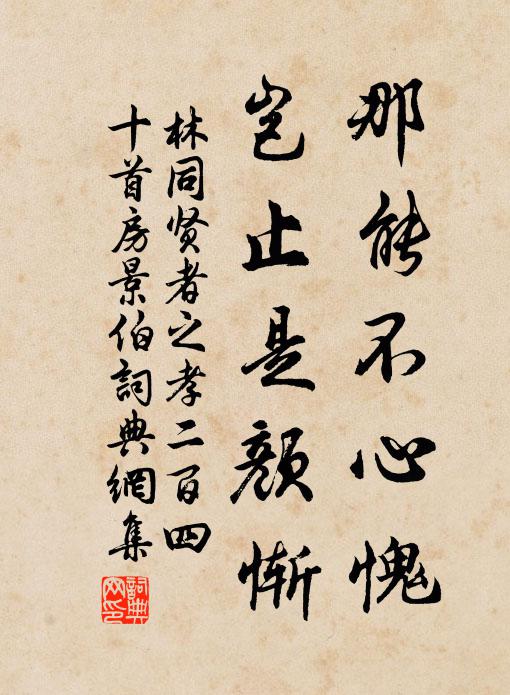 那能不心愧
岂止是颜惭
林同贤者之孝二百四
十首房景伯詞典網集
詞典網印